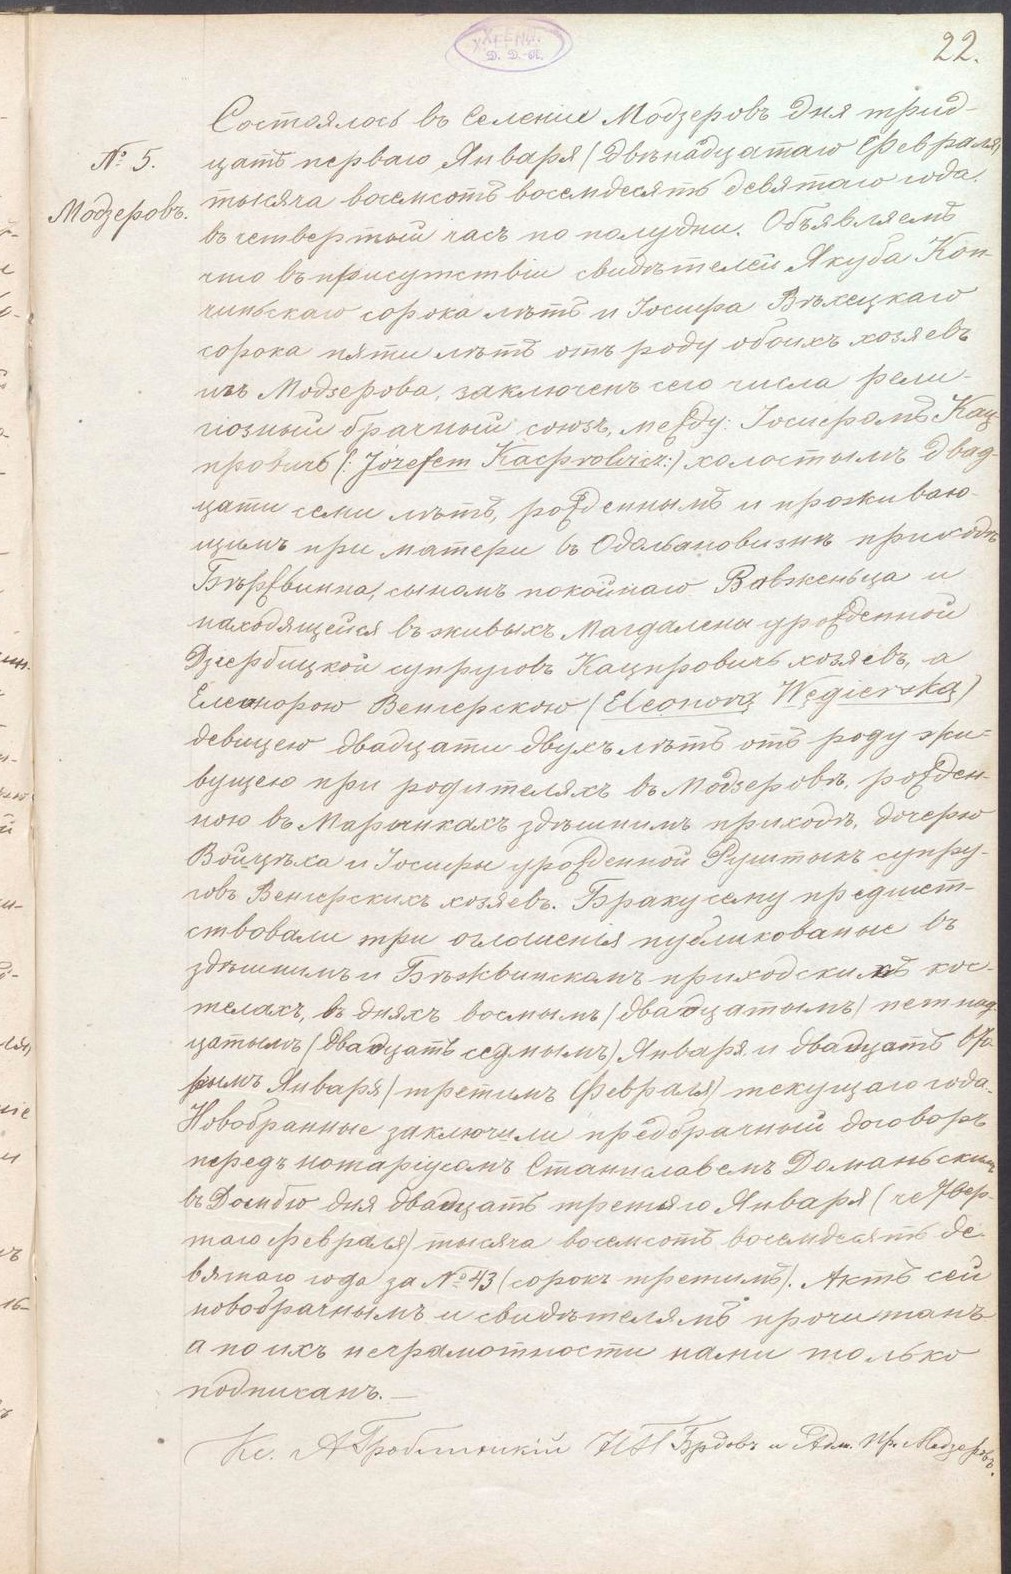 22.
Д. Д. А.
№ 5.
Модзеровъ.
Состоялось въ селеніи Модзеровъ дня трид-
цать перваго Января (двѣнадцатаго Февраля)
тысяча восемсотъ восемдесятъ девятаго года
въ четвертый часъ по полудни. Объявляемъ
что въ присутствіи свидѣтелей Якуба Коп-
чиньскаго сорока лѣтъ и Іосифа Вѣхецкаго
сорока пяти лѣтъ отъ роду обоихъ хозяевъ
изъ Модзерова, заключенъ сего числа рели-
гіозный брачный союзъ, между: Іосифомъ Кац-
провичъ (: Józefem Kacprowicz:) холостымъ двад-
цати семи лѣтъ, рожденнымъ и проживаю-
щимъ при матери въ приходѣ
сыномъ покойнаго Вавженьца и
находящейся въ живыхъ Магдалены урожденной
Дзербицкой супруговъ Кацпровичъ хозяевъ, а
Елеонорою Венгерскою (Eleonorą Węgierską)
девицею двадцати двухъ лѣтъ отъ роду жи-
вущею при родителяхъ въ Модзеровѣ, рожден-
ною въ Марынкахъ здѣшнимъ приходѣ, дочерью
Войцѣха и Іосифы урожденной Руштыкъ супру-
говъ Венгерскихъ хозяевъ. Браку сему предшест-
ствовали три оглошенія публикованые въ
здѣшнимъ и приходскихъ кос-
телахъ, въ дняхъ восмымъ (двадцатымъ) петнад-
цатымъ (двадцать седмымъ) Января и двадцать вто-
рымъ Января (третимъ Февраля) текущаго года.
Новобрачные заключили предбрачный договоръ
передъ нотаріусомъ Станиславемъ Доманьскимъ
въ Домбю дня двадцать третьяго Января (четвер-
таго Февраля) тысяча восемсотъ восемдесятъ де
вятаго года за № 43 (сорокъ третимъ). Актъ сей
новобрачнымъ и свидѣтелямъ прочитанъ
а по ихъ неграмотности нами только
подписанъ.—
Кс. А Гроблиньскій Н П Брдовъ и Адм. Пр. Модзеровъ.